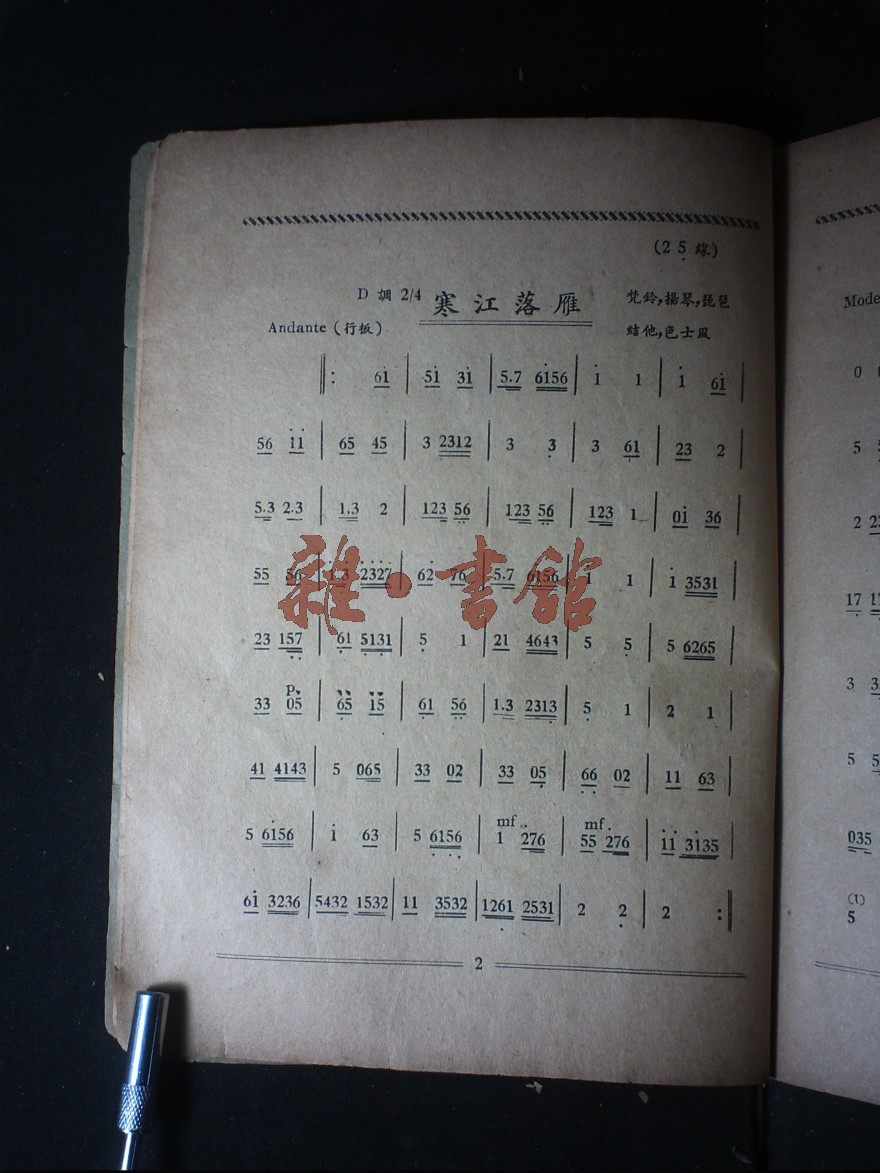 (2 5 線)
D 調 2/4 寒江落雁 梵鈴,揚琴,琵琶
Andante (行板) 結他,色士風
‖: 6i | 5i 3i | 5.7 6i56 | i 1 | i 6i |
56 ii | 65 45 | 3 2312 | 3 3 | 3 61 | 23 2 |
5.3 2.3 | 1.3 2 | 123 56 | 123 56 | 123 1 | 0i 36 |
55 56 | 1.3 2327 | 62 76 | 5.7 6156 | 1 1 | i 3531 |
23 157 | 61 5131 | 5 1 | 21 4643 | 5 5 | 5 6265 |
P
33 05 | 65 15 | 61 56 | 1.3 2313 | 5 1 | 2 1 |
41 4143 | 5 065 | 33 02 | 33 05 | 66 02 | 11 63 |
mf mf
5 6i56 | i 63 | 5 6156 | 1 276 | 55 276 | ii 3i35 |
6i 3236 | 5432 1532 | 11 3532 | 1261 2531 | 2 2 | 2 :‖
2
雜·書館
Mode
0
5 5
2 23
17 17
3 3
5 5
035
(1)
5